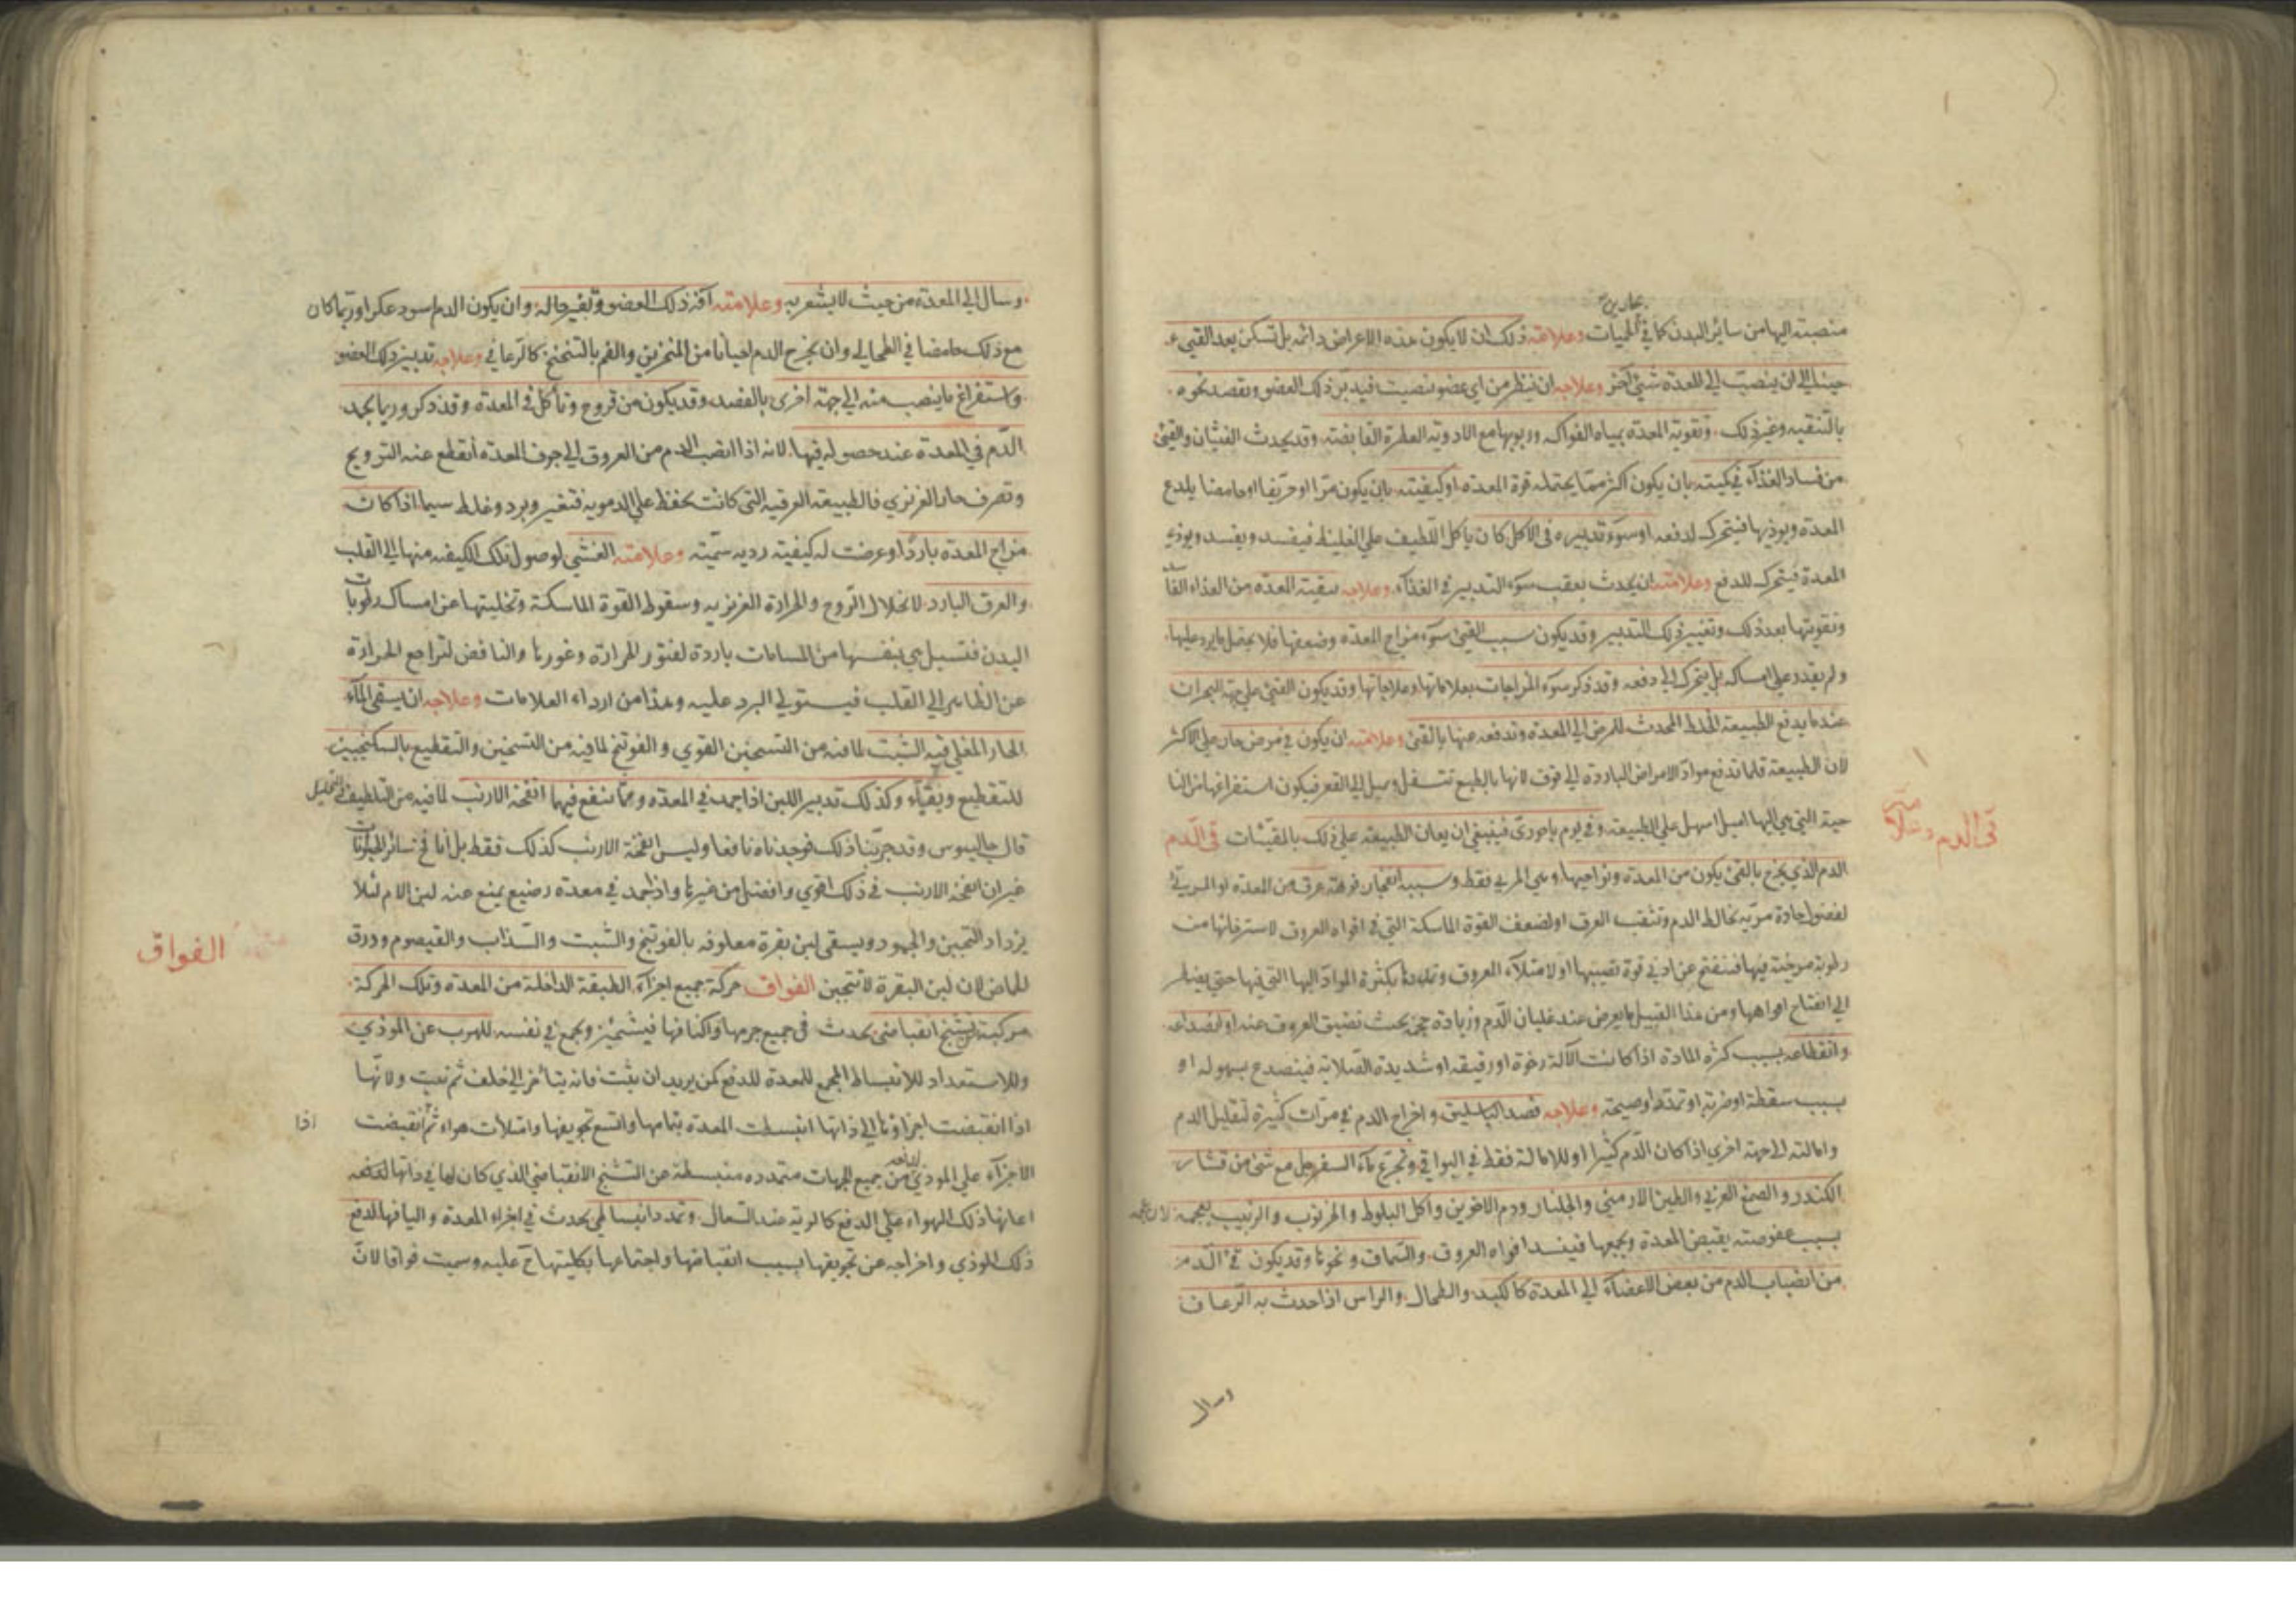 منصبته اليها من سائر البدن كما في الحميات وعلامته ذلك ان لا يكون هذه الاعراض دائمه بل تسكن بعد القيء
حينا الى ان ينصب الى المعدة شيء آخر وعلاجه ان ينظر من اي عضو تنصب فيدبر ذلك العضو ويقصد نحوه
بالتنقيه وغير ذلك وتقويته المعدة بمياه الفواكه وربوبها مع الادويه العطرة القابضه وقد يحدث الغثيان والقيء
من فساد الغذاء في كميته بان يكون اكثر مما يحتمله قوة المعدة او كيفيته بان يكون مرا او حريفا او حامضا يلذع
المعدة ويوذيها فيتحرك لدفعه او سوء تدبيره في الاكل كان ياكل اللطيف على الغليظ فيفسد ويفسد ويوذي
المعدة فيتحرك للدفع وعلامته ان يحدث بعقب سوء التدبير في الغذاء وعلاجه تنقية المعدة من الغذاء
وتقويتها بعد ذلك وتغيير ذلك التدبير وقد يكون سبب القيء سوء مزاج المعدة وضعفها فلا يحتمل ما يرد عليها
ولم يقدر على امساكه بل يتحرك الى دفعه وقد ذكر سوء المزاجات بعلاماتها وعلاجاتها وقد يكون القيء على جهة البحران
عندما يدفع الطبيعة الخلط المحدث للمرض الى المعدة وتدفعه عنها بالقيء وعلامته ان يكون في مرض حار على الاكثر
لان الطبيعة قلما تدفع مواد الامراض الباردة الى فوق لانها بالطبع تتسفل وميل الى القعر فيكون استفراغها من النا
حية التي هي اليها اميل اسهل على الطبيعة وفي يوم باحوري فينبغي ان يعان الطبيعة على ذلك بالمقيئات قيء الدم
قيء الدم
الدم الذي يخرج بالقيء يكون من المعدة ونواحيها وهي المري فقط وسببه انفجار فوهة عرق من المعدة او المري
لفضول حادة مرية تخالط الدم وتثقب العرق او لضعف القوة الماسكة التي في افواه العروق لاسترخائها من
رطوبة مرخية فيها فتنفتح عن ادنى قوة تصيبها او لامتلاء العروق وتمددها بكثرة المواد اليها التي فيها حتى يضطر
الى انفتاح افواهها ومن هذا القبيل ما يعرض عند غليان الدم وزيادة حجمه بحيث تضيق العروق عنه او لانصداعه
وانقطاعه بسبب كثرة المادة اذا كانت الآلة رخوة او رقيقه او شديدة الصلابة فينصدع بسهوله او
بسبب سقطة او ضربة او تمدد او صيحة وعلاجه فصد الباسليق واخراج الدم في مرات كثيرة لتقليل الدم
وامالته الى جهة اخرى اذا كان الدم كثيرا او للامالة فقط في البواقي وتجرع ماء السفرجل مع شيء من قشار
الكندر والصمغ العربي والطين الارمني والجلنار ودم الاخوين واكل البلوط والخرنوب والزبيب بعجمه
بسبب عفوصته يقبض المعدة ويجمعها فينسد افواه العروق والسماق ونحوها وقد يكون قيء الدم
من انصباب الدم من بعض الاعضاء الى المعدة كالكبد والطحال والراس اذا حدث به الرعاف
وسال
وسال الى المعدة من حيث لا يشعر به وعلامته آفة ذلك العضو وتغير حاله وان يكون الدم اسود عكرا وربما كان
مع ذلك حامضا في الطحالي وان يخرج الدم احيانا من المنخرين والفم بالتنخنخ كالرعافي وعلاجه تدبير ذلك العضو
واستفراغ ما ينصب منه الى جهة اخرى بالفصد وقد يكون من قروح وتأكل في المعدة وقد ذكر وربما يجمد
الدم في المعدة عند حصوله فيها لانه اذا انصب الدم من العروق الى جوف المعدة انقطع عنه الترويح
وتصرف حار الغريزي فالطبيعة العرقيه التي كانت تحفظ على الدمويه فتغير وبرد وغلظ سيما اذا كان
مزاج المعدة باردا وعرضت له كيفيته رديه سميته وعلامته الغشي لوصول تلك الكيفيه منها الى القلب
والعرق البارد لانحلال الروح والحرارة الغريزيه وسقوط القوة الماسكة وتخليتها عن امساك رطوبات
البدن فتسيل هي بنفسها من المسامات باردة لفتور الحرارة وغورها والنافض لتراجع الحرارة
عن الظاهر الى القلب فيستولي البرد عليه وهذا من ارداء العلامات وعلاجه ان يسقى الماء
الحار المغلي فيه الشبت لما فيه من التسخين القوي والفوتنج لما فيه من التسخين والتقطيع بالسكنجبين
للتقطيع ويقيأ وكذلك تدبير اللبن اذا جمد في المعدة ومما ينفع فيهما انفحة الارنب لما فيه من التلطيف والتحليل
قال جالينوس وقد جربنا ذلك فوجدناه نافعا وليس انفحة الارنب كذلك فقط بل انافح سائر الحيوانات
غير ان انفحة الارنب في ذلك اقوى وافضل من غيرها واذا جمد في معدة رضيع يمنع عنه لبن الام لئلا
يزداد التجبن والجمود ويسقى لبن بقرة معلوفه بالفوتنج والشبت والسذاب والقيصوم وورق
الفواق
الحماض لان لبن البقرة لا تتجبن الفواق حركة جميع اجزاء الطبقة الداخلة من المعدة وتلك الحركة
مركبة من تشنج انقباضي يحدث في جميع جرمها واكنافها فيشمئز ويجمع في نفسه للهرب عن الموذي
وللاستعداد للانبساط المجمع للمعدة للدفع كمن يريد ان يثب فانه يتأخر الى خلف ثم يثب ولانها
اذا انقبضت اجزاؤها الى ذاتها انبسطت المعدة بتمامها واتسع تجويفها وامتلأت هواء ثم انقبضت
اذا
الاجزاء على الموذي من جميع الجهات متمدده منبسطة عن التشنج الانقباضي الذي كان لها في ذاتها لدفعه
اعانها ذلك الهواء على الدفع كالرية عند السعال وتمدد انبساطي يحدث في اجزاء المعدة واليافها لدفع
ذلك الموذي واخراجه عن تجويفها بسبب انقباضها واجتماعها بكليتها عليه وسميت فواقا لان